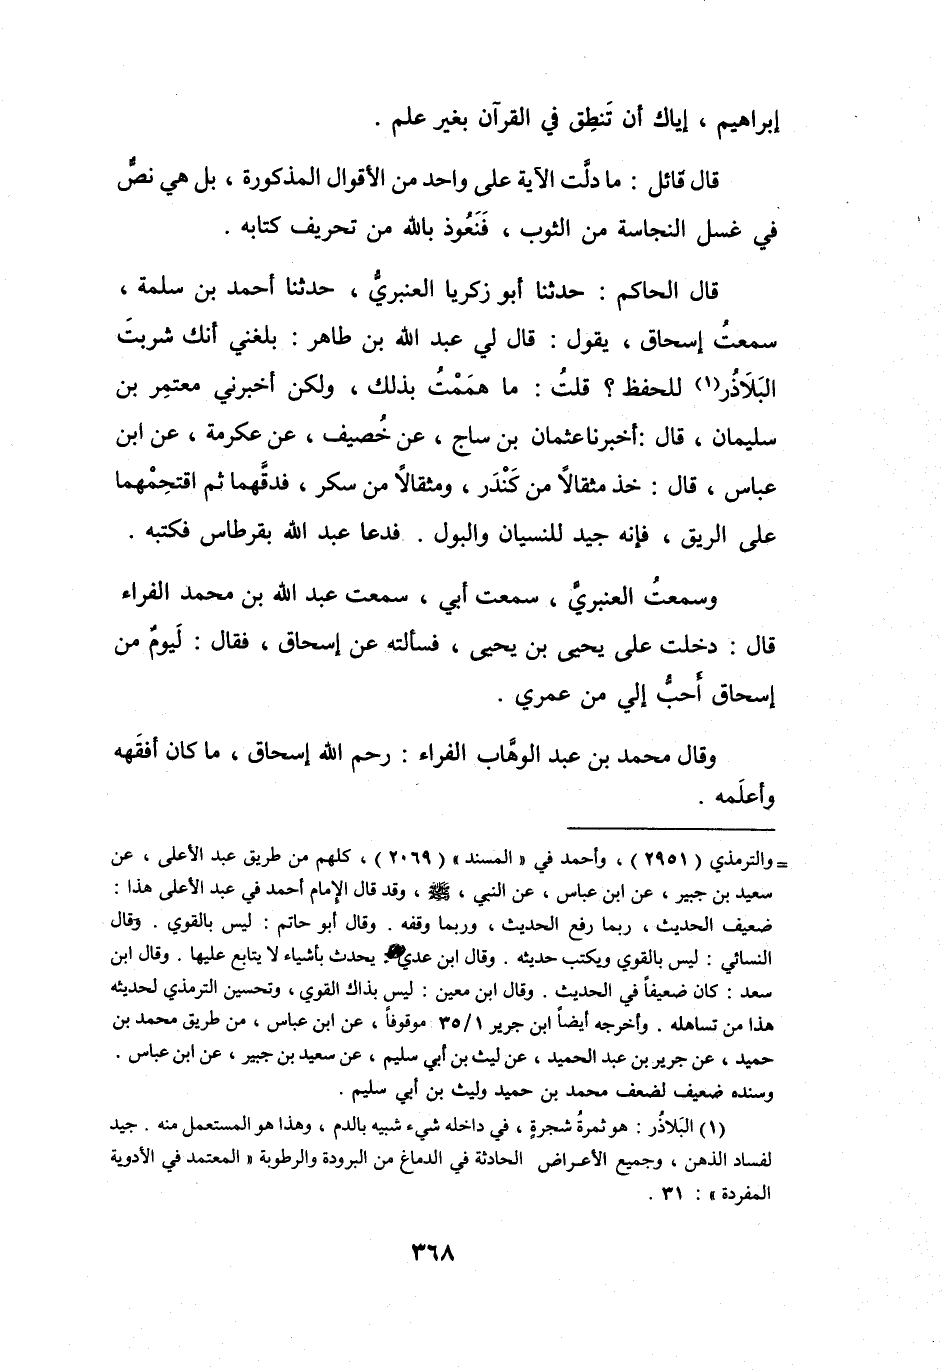 إبراهيم ، إياك أن تَنطِق في القرآن بغير علم .
قال قائل : ما دلَّت الآية على واحد من الأقوال المذكورة ، بل هي نصٌّ
في غسل النجاسة من الثوب ، فَنَعُوذ بالله من تحريف كتابه .
قال الحاكم : حدثنا أبو زكريا العنبريُّ ، حدثنا أحمد بن سلمة ،
سمعتُ إسحاق ، يقول : قال لي عبد الله بن طاهر : بلغني أنك شربتَ
البَلَاذُر(١) للحفظ ؟ قلتُ : ما هَمَمْتُ بذلك ، ولكن أخبرني معتمِر بن
سليمان ، قال :أخبرنا عثمان بن ساج ، عن خُصيف ، عن عكرمة ، عن ابن
عباس ، قال : خذ مثقالاً من كَنْدَر ، ومثقالاً من سكر ، فدقَّهما ثم اقتحِمْهما
على الريق ، فإنه جيد للنسيان والبول . فدعا عبد الله بقرطاس فكتبه .
وسمعتُ العنبريَّ ، سمعت أبي ، سمعت عبد الله بن محمد الفراء
قال : دخلت على يحيى بن يحيى ، فسألته عن إسحاق ، فقال : لَيومٌ من
إسحاق أَحبُّ إلي من عمري .
وقال محمد بن عبد الوهَّاب الفراء : رحم الله إسحاق ، ما كان أفقَهه
وأعلَمه .
= والترمذي ( ٢٩٥١ ) ، وأحمد في « المسند » ( ٢٠٦٩ ) ، كلهم من طريق عبد الأعلى ، عن
سعيد بن جبير ، عن ابن عباس ، عن النبي ، ﷺ ، وقد قال الإمام أحمد في عبد الأعلى هذا :
ضعيف الحديث ، ربما رفع الحديث ، وربما وقفه . وقال أبو حاتم : ليس بالقوي . وقال
النسائي : ليس بالقوي ويكتب حديثه . وقال ابن عدي : يحدث بأشياء لا يتابع عليها . وقال ابن
سعد : كان ضعيفاً في الحديث . وقال ابن معين : ليس بذاك القوي ، وتحسين الترمذي لحديثه
هذا من تساهله . وأخرجه أيضاً ابن جرير ٣٥/١ موقوفاً ، عن ابن عباس ، من طريق محمد بن
حميد ، عن جرير بن عبد الحميد ، عن ليث بن أبي سليم ، عن سعيد بن جبير ، عن ابن عباس .
وسنده ضعيف لضعف محمد بن حميد وليث بن أبي سليم .
(١) البَلاذُر : هو ثمرةُ شجرةٍ ، في داخله شيء شبيه بالدم ، وهذا هو المستعمل منه . جيد
لفساد الذهن ، وجميع الأعراض الحادثة في الدماغ من البرودة والرطوبة « المعتمد في الأدوية
المفردة » : ٣١ .
٣٦٨